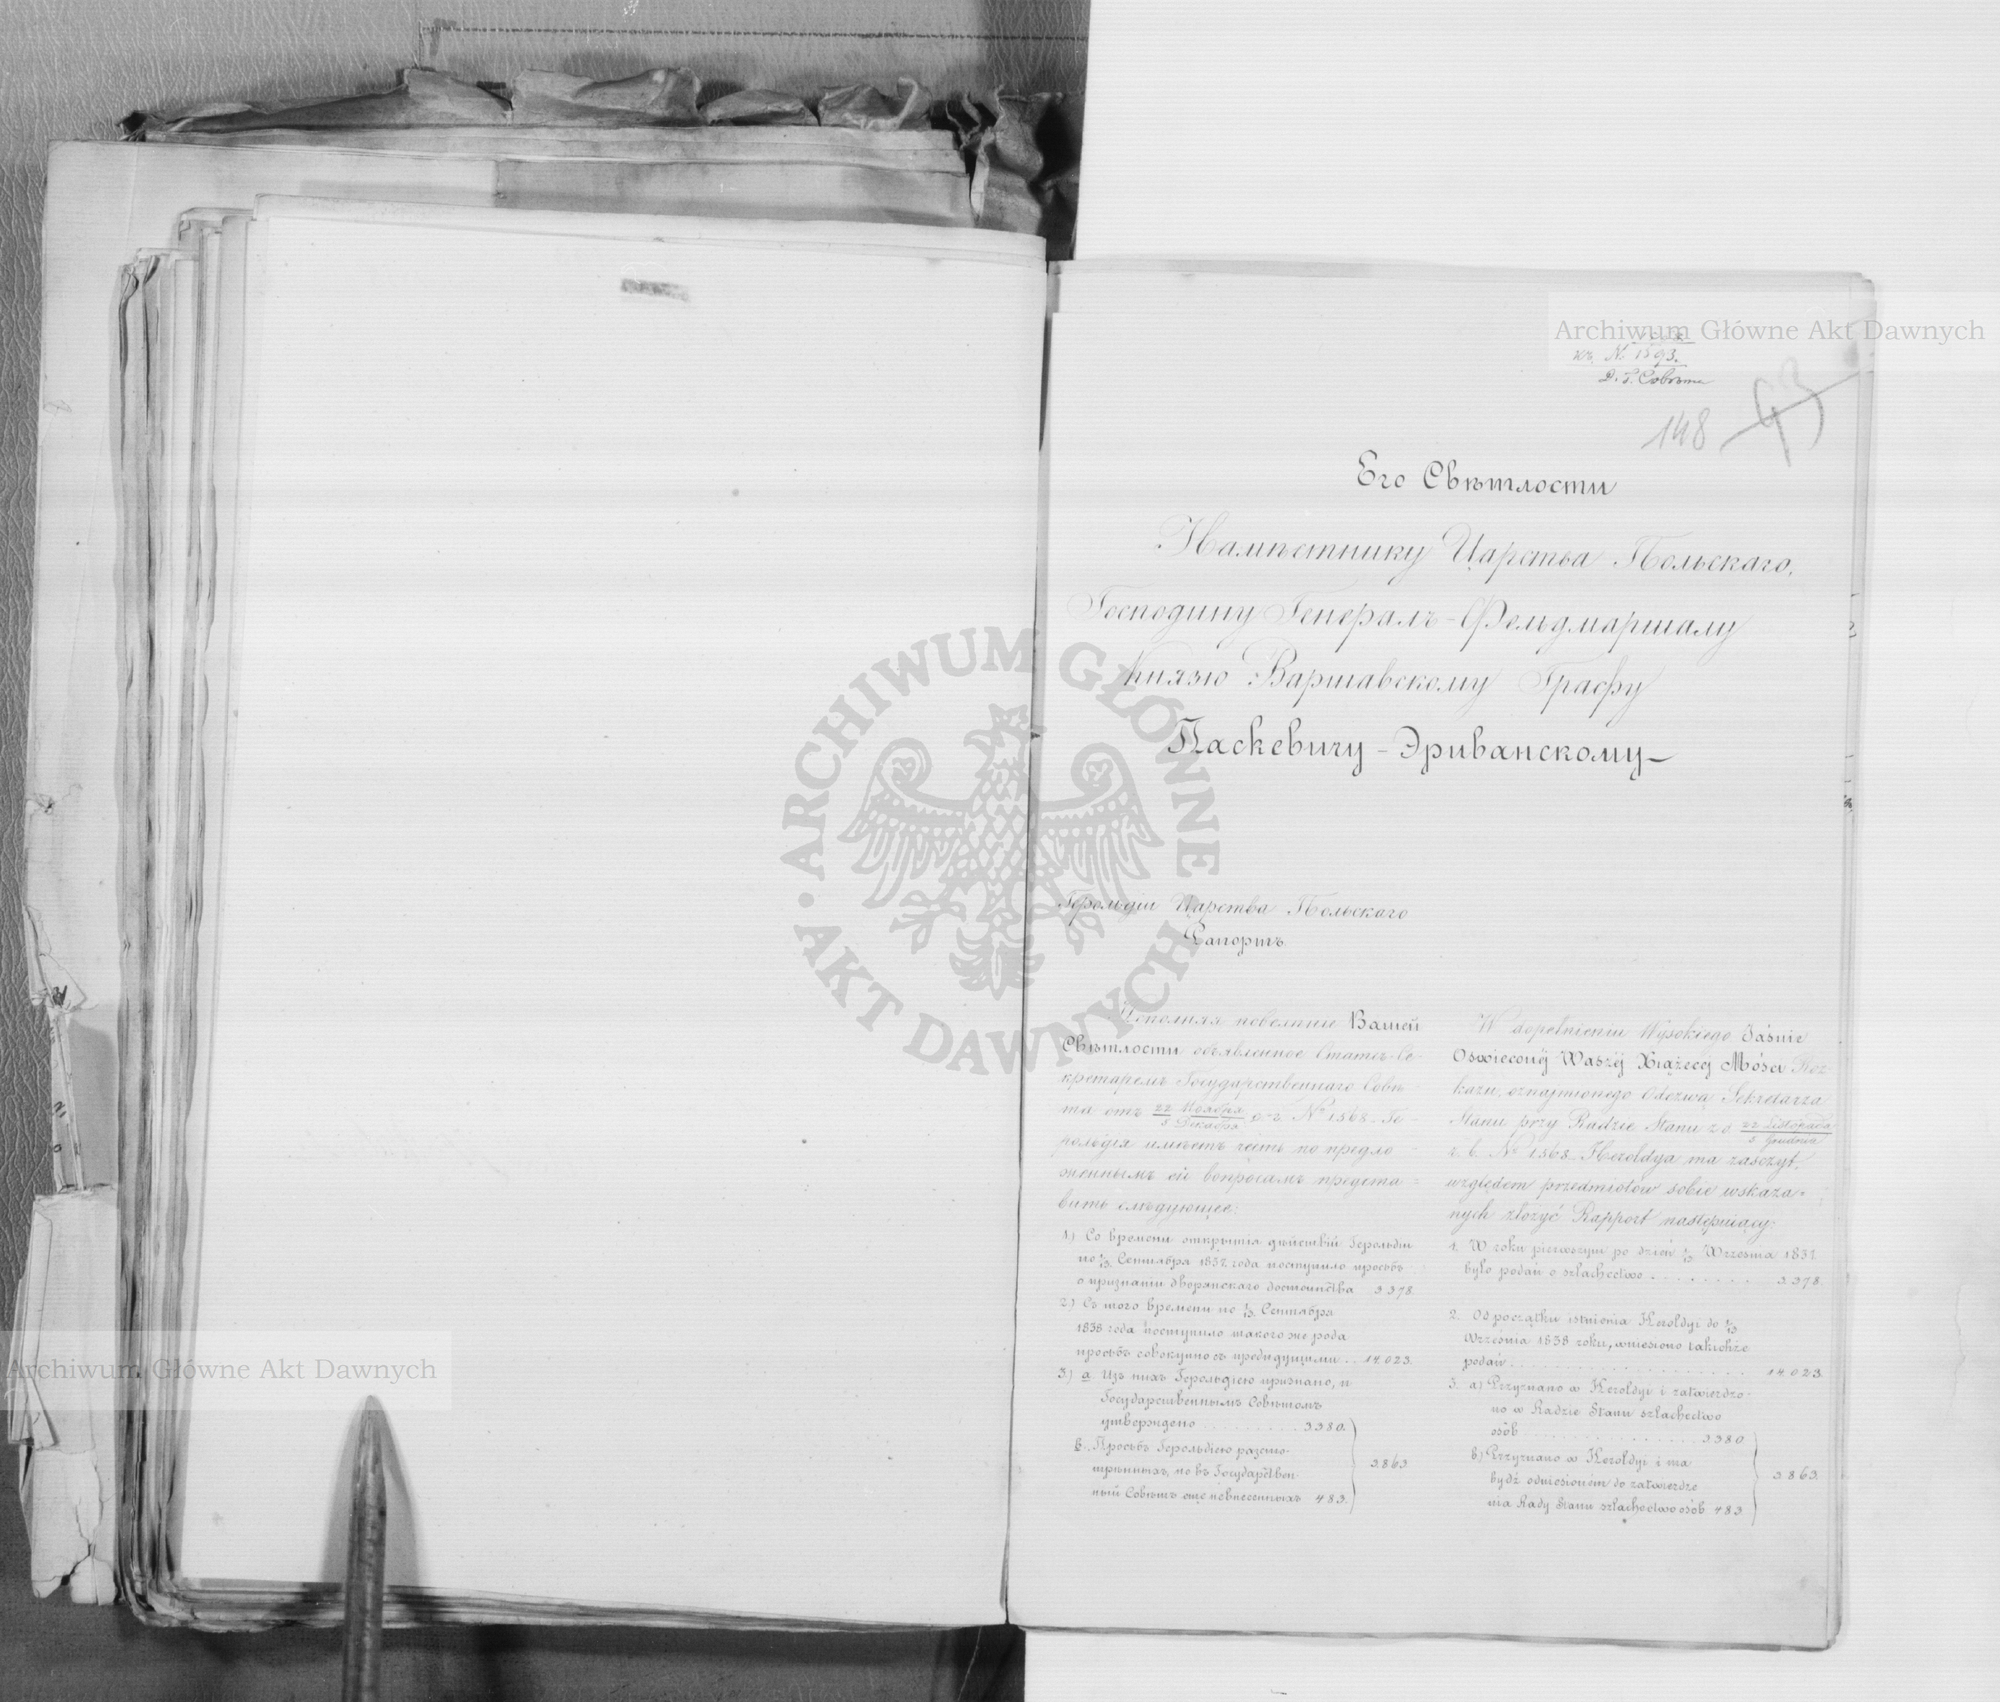 Archiwum Główne Akt Dawnych
къ № 1593.
Д. Г. Совѣта
148 93
Его Свѣтлости
Намѣстнику Царства Польскаго,
Господину Генералъ-Фельдмаршалу
Князю Варшавскому Графу
Паскевичу-Эриванскому
Герольдіи Царства Польскаго
Рапортъ
Исполняя повелѣніе Вашей
Свѣтлости объявленное Статсъ-Се-
кретаремъ Государственнаго Совѣ-
та отъ 22 Ноября / 5 Декабря с. г. № 1568. Ге-
рольдія имѣетъ честь по предло-
женнымъ ей вопросамъ предста-
вить слѣдующее:
1.) Со времени открытія дѣйствій Герольдіи
по 1/13 Сентября 1837 года поступило просьбъ
о признаніи дворянскаго достоинства 3378.
2.) Съ того времени по 1/13 Сентября
1838 года поступило такого же рода
просьбъ совокупно съ предидущими .. 14.023.
3.) а Изъ нихъ Герольдіею признано, и
Государственнымъ Совѣтомъ
утверждено . . . . . . . . 3380.
в. Просьбъ Герольдіею разсмо-
трѣнныхъ, но въ Государствен-
ный Совѣтъ еще невнесенныхъ 483.
3863
W dopełnieniu Wysokiego Jaśnie
Oswieconéj Waszéj Xiążecéj Mości Roz-
kazu, oznajmionego Odezwą Sekretarza
Stanu przy Radzie Stanu z d. 22 Listopada / 5 Grudnia
r. b. № 1568. Heroldya ma zaszczyt,
względem przedmiotów sobie wskaza-
nych złożyć Rapport następujący:
1. W roku pierwszym po dzień 1/13 Września 1837
było podań o szlachectwo . . . . . . . . . 3378.
2. Od początku istnienia Heroldyi do 1/13
Września 1838 roku, wniesiono takichże
podań . . . . . . . . . . . . . . . . 14.023.
3. a) Przyznano w Heroldyi i zatwierdzo-
no w Radzie Stanu szlachectwo
osób . . . . . . . . . . . . . 3380
b) Przyznano w Heroldyi i ma
bydź odniesioném do zatwierdze
nia Rady Stanu szlachectwo osób 483
3863.
ARCHIWUM GŁÓWNE AKT DAWNYCH
Archiwum Główne Akt Dawnych